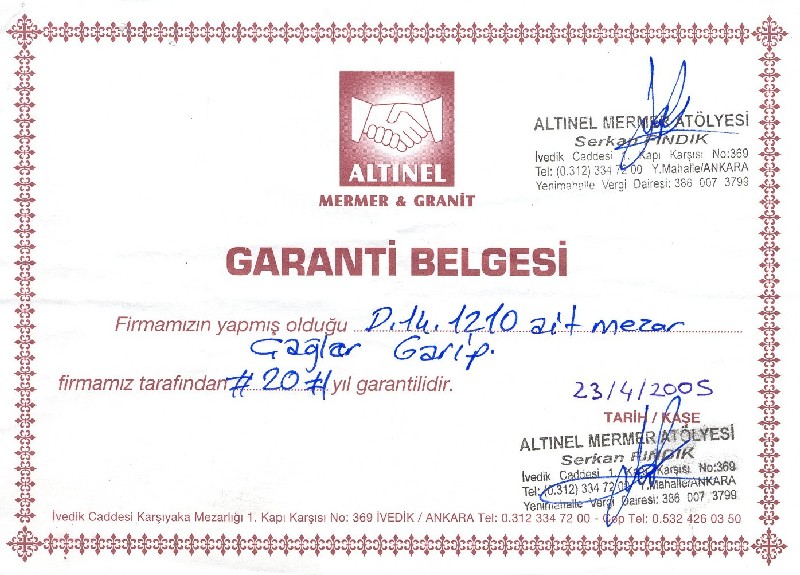 ALTINEL
MERMER & GRANİT
ALTINEL MERMER ATÖLYESİ
Serkan FINDIK
İvedik Caddesi 1. Kapı Karşısı No:369
Tel: (0.312) 334 72 00 Y.Mahalle/ANKARA
Yenimahalle Vergi Dairesi: 386 007 3799
GARANTİ BELGESİ
Firmamızın yapmış olduğu D.14.1210 ait mezar
Çağlar Garip.
firmamız tarafından # 20 # yıl garantilidir.
23/4/2005
TARİH / KAŞE
ALTINEL MERMER ATÖLYESİ
Serkan FINDIK
İvedik Caddesi 1. Kapı Karşısı No:369
Tel: (0.312) 334 72 00 Y.Mahalle/ANKARA
Yenimahalle Vergi Dairesi: 386 007 3799
İvedik Caddesi Karşıyaka Mezarlığı 1. Kapı Karşısı No: 369 İVEDİK / ANKARA Tel: 0.312 334 72 00 - Cep Tel: 0.532 426 03 50